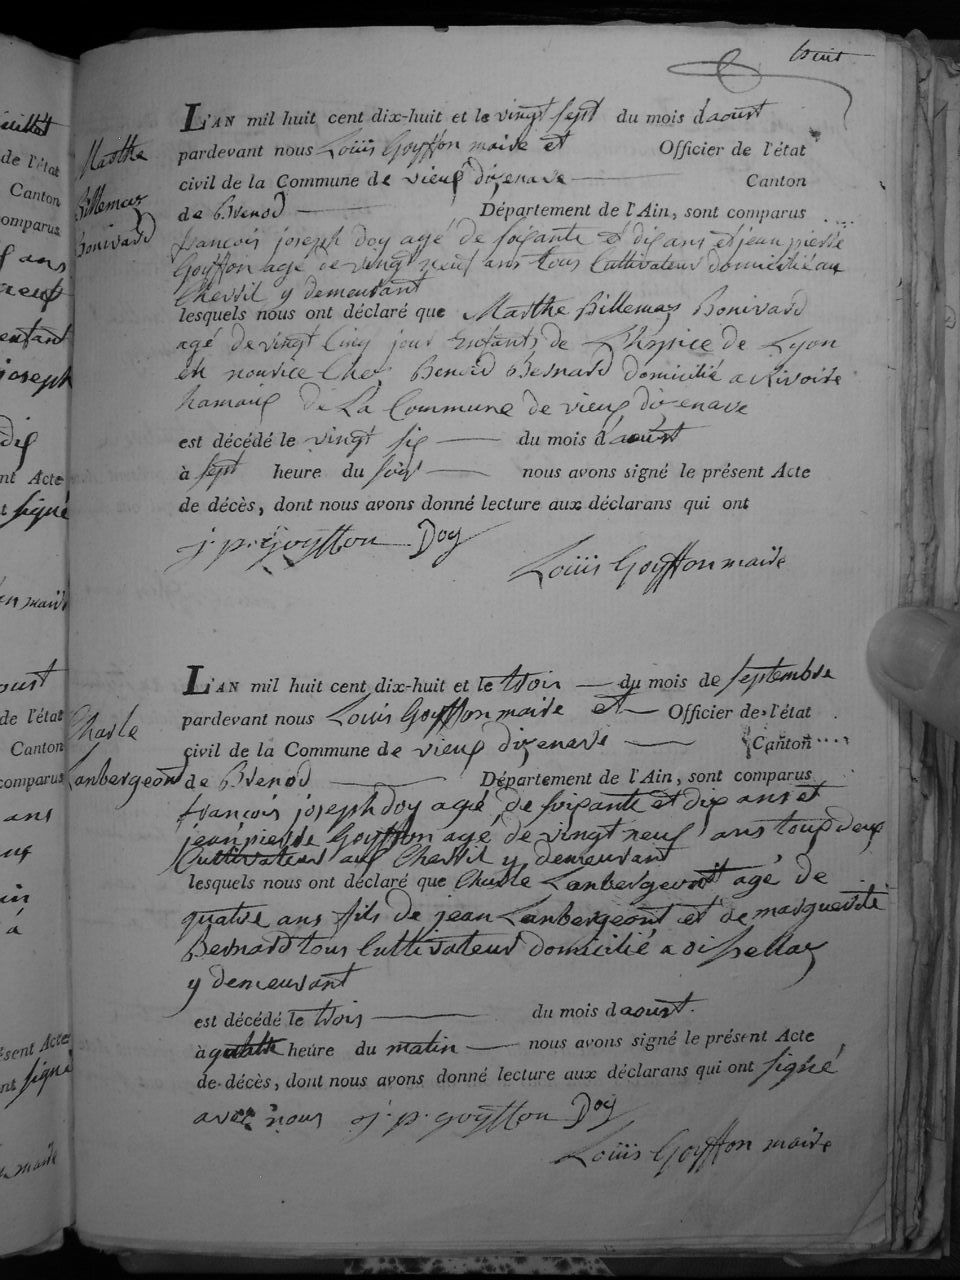 huit
L'AN mil huit cent dix-huit et le vingt sept du mois d'aoust
pardevant nous Louis Goyffon maire et Officier de l'état
civil de la Commune de vieux dizenave Canton
de Brenod Département de l'Ain, sont comparus
françois joseph Doy agé de soixante et dix ans et jean pierre
Goyffon agé de vingt neuf ans tous Cultivateur domicilié au
Chevril y demeurant
lesquels nous ont déclaré que Marthe Billemaz Bonivard
agé de vingt Cinq jour Enfants de L'hospice de Lyon
en nourice Chez Benoid Bernard domicilié a Rivoire
hamaux De La Commune de vieux dizenave
est décédé le vingt six du mois d'aoust
à sept heure du soir nous avons signé le présent Acte
de décès, dont nous avons donné lecture aux déclarans qui ont
j. p. goyffon Doy
Louis Goyffon maire
Marthe
Billemaz
Bonivard
L'AN mil huit cent dix-huit et le trois du mois de septembre
pardevant nous Louis Goyffon maire et Officier de l'état
civil de la Commune de vieux dizenave Canton
de Brenod Département de l'Ain, sont comparus
françois joseph doy agé de soixante et dix ans et
jean pierre Goyffon agé de vingt neuf ans tous deux
Cultivateur aux Chevril y demeurant
lesquels nous ont déclaré que Charle Lanbergeont agé de
quatre ans fils de jean Lanbergeont et de marguerite
Bernard tous Cultivateur domicilié a
y demeurant
est décédé le trois du mois d'aoust.
à quatre heure du matin nous avons signé le présent Acte
de décès, dont nous avons donné lecture aux déclarans qui ont signé
avec nous j. p. goyffon Doy
Louis Goyffon maire
Charle
Lanbergeont